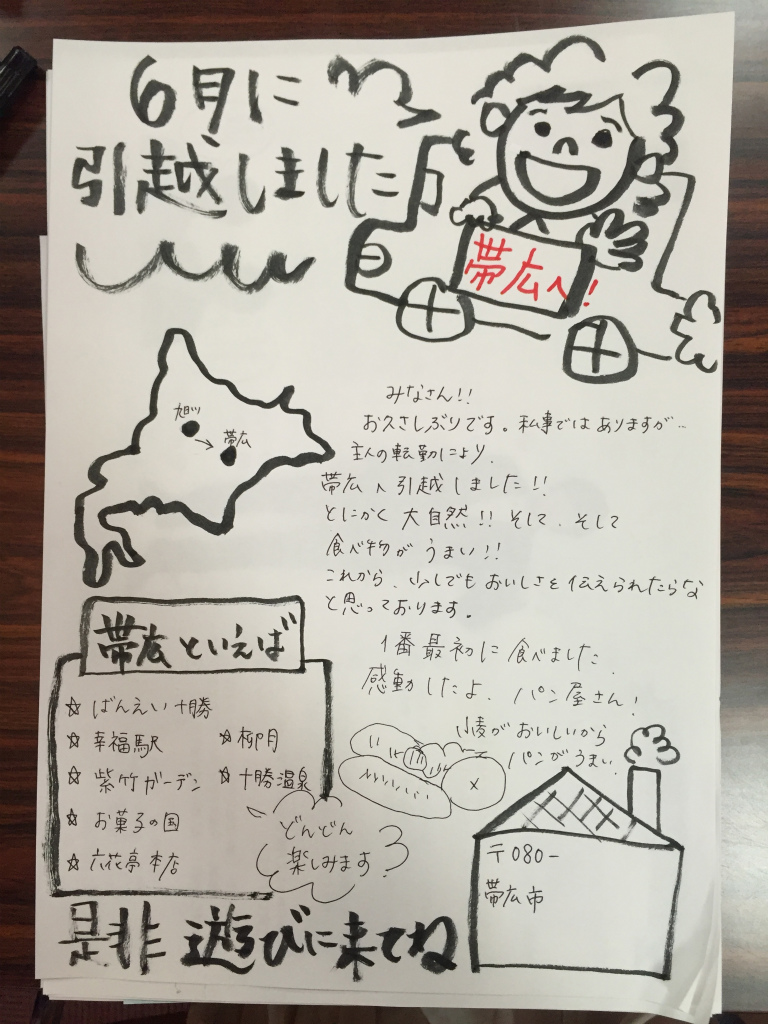 6月に
引越しました
帯広へ!
旭川
→帯広
みなさん!!
お久さしぶりです。私事ではありますが…
主人の転勤により、
帯広へ引越しました!!
とにかく大自然!!そして、そして
食べ物がうまい!!
これから、少しでもおいしさを伝えられたらな
と思っております。
1番最初に食べました
感動したよ、パン屋さん!
小麦がおいしいから
パンがうまい
帯広といえば
☆ばんえい十勝
☆幸福駅
☆柳月
☆紫竹ガーデン
☆十勝温泉
☆お菓子の国
☆六花亭本店
どんどん
楽しみます
〒080-
帯広市
是非遊びに来てね